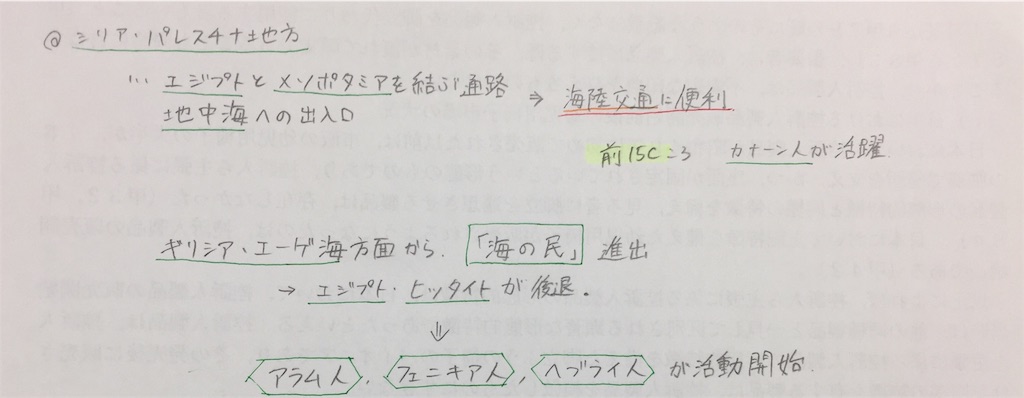 @ シリア・パレスチナ地方
… エジプトとメソポタミアを結ぶ通路 ⇒ 海陸交通に便利
地中海への出入口
前15Cころ カナーン人が活躍.
ギリシア・エーゲ海方面から.「海の民」進出
→ エジプト・ヒッタイトが後退.
⇓
アラム人, フェニキア人, ヘブライ人 が活動開始.